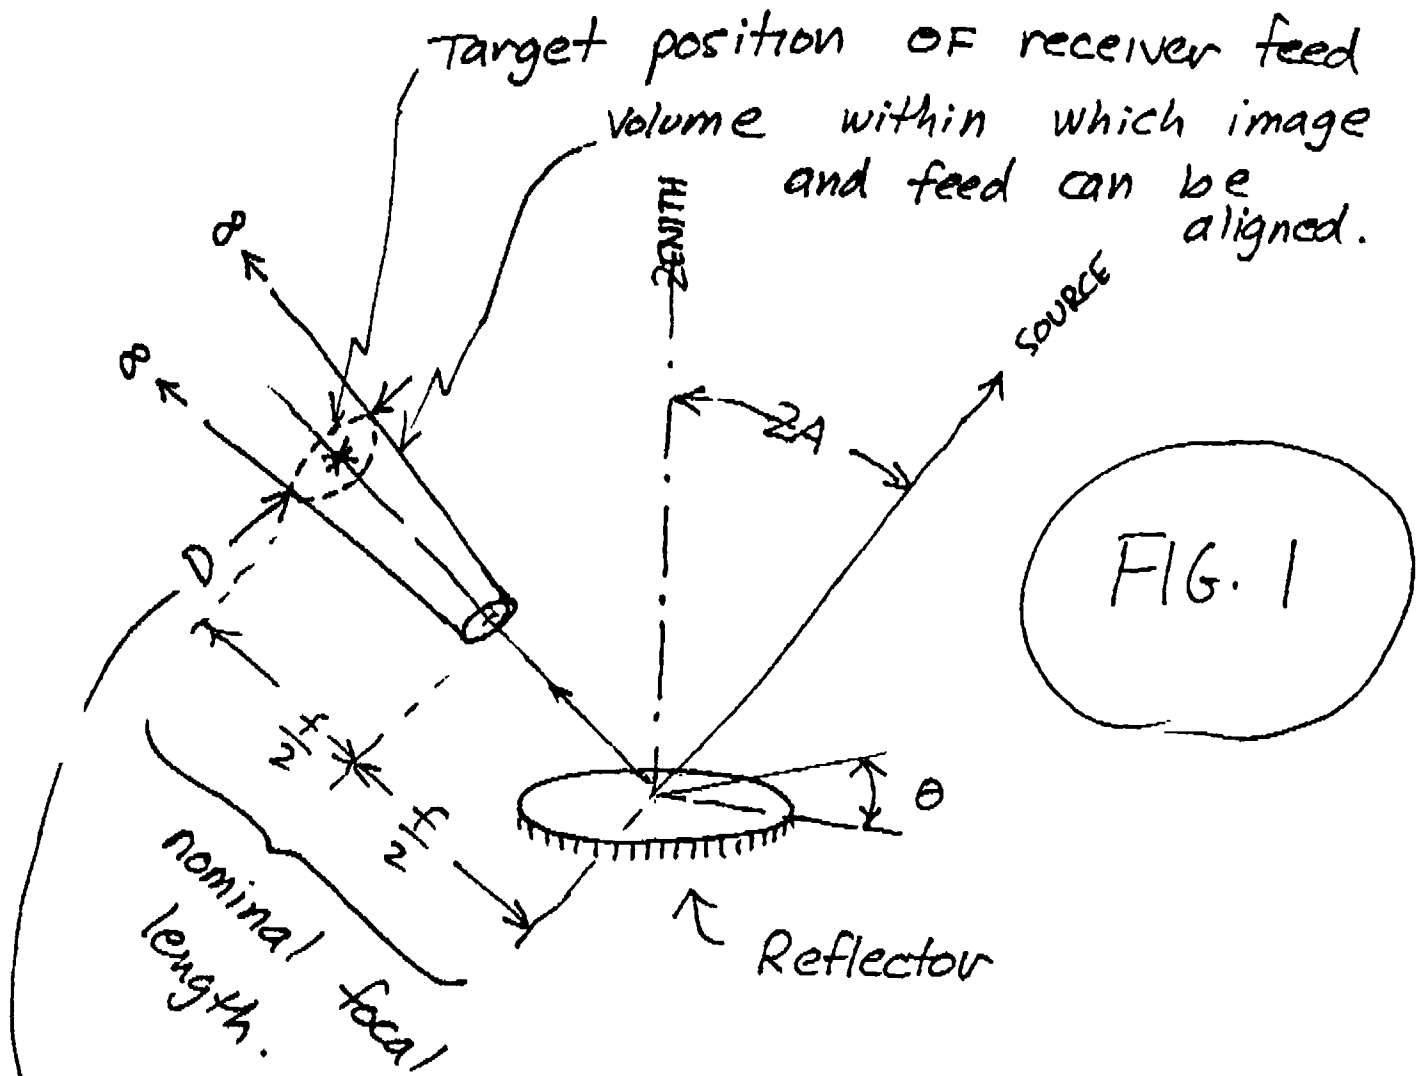 Target position OF receiver feed
volume within which image
and feed can be
aligned.
ZENITH
SOURCE
∞
∞
ZA
FIG. 1
D
f/2
f/2
θ
nominal focal
length.
Reflector